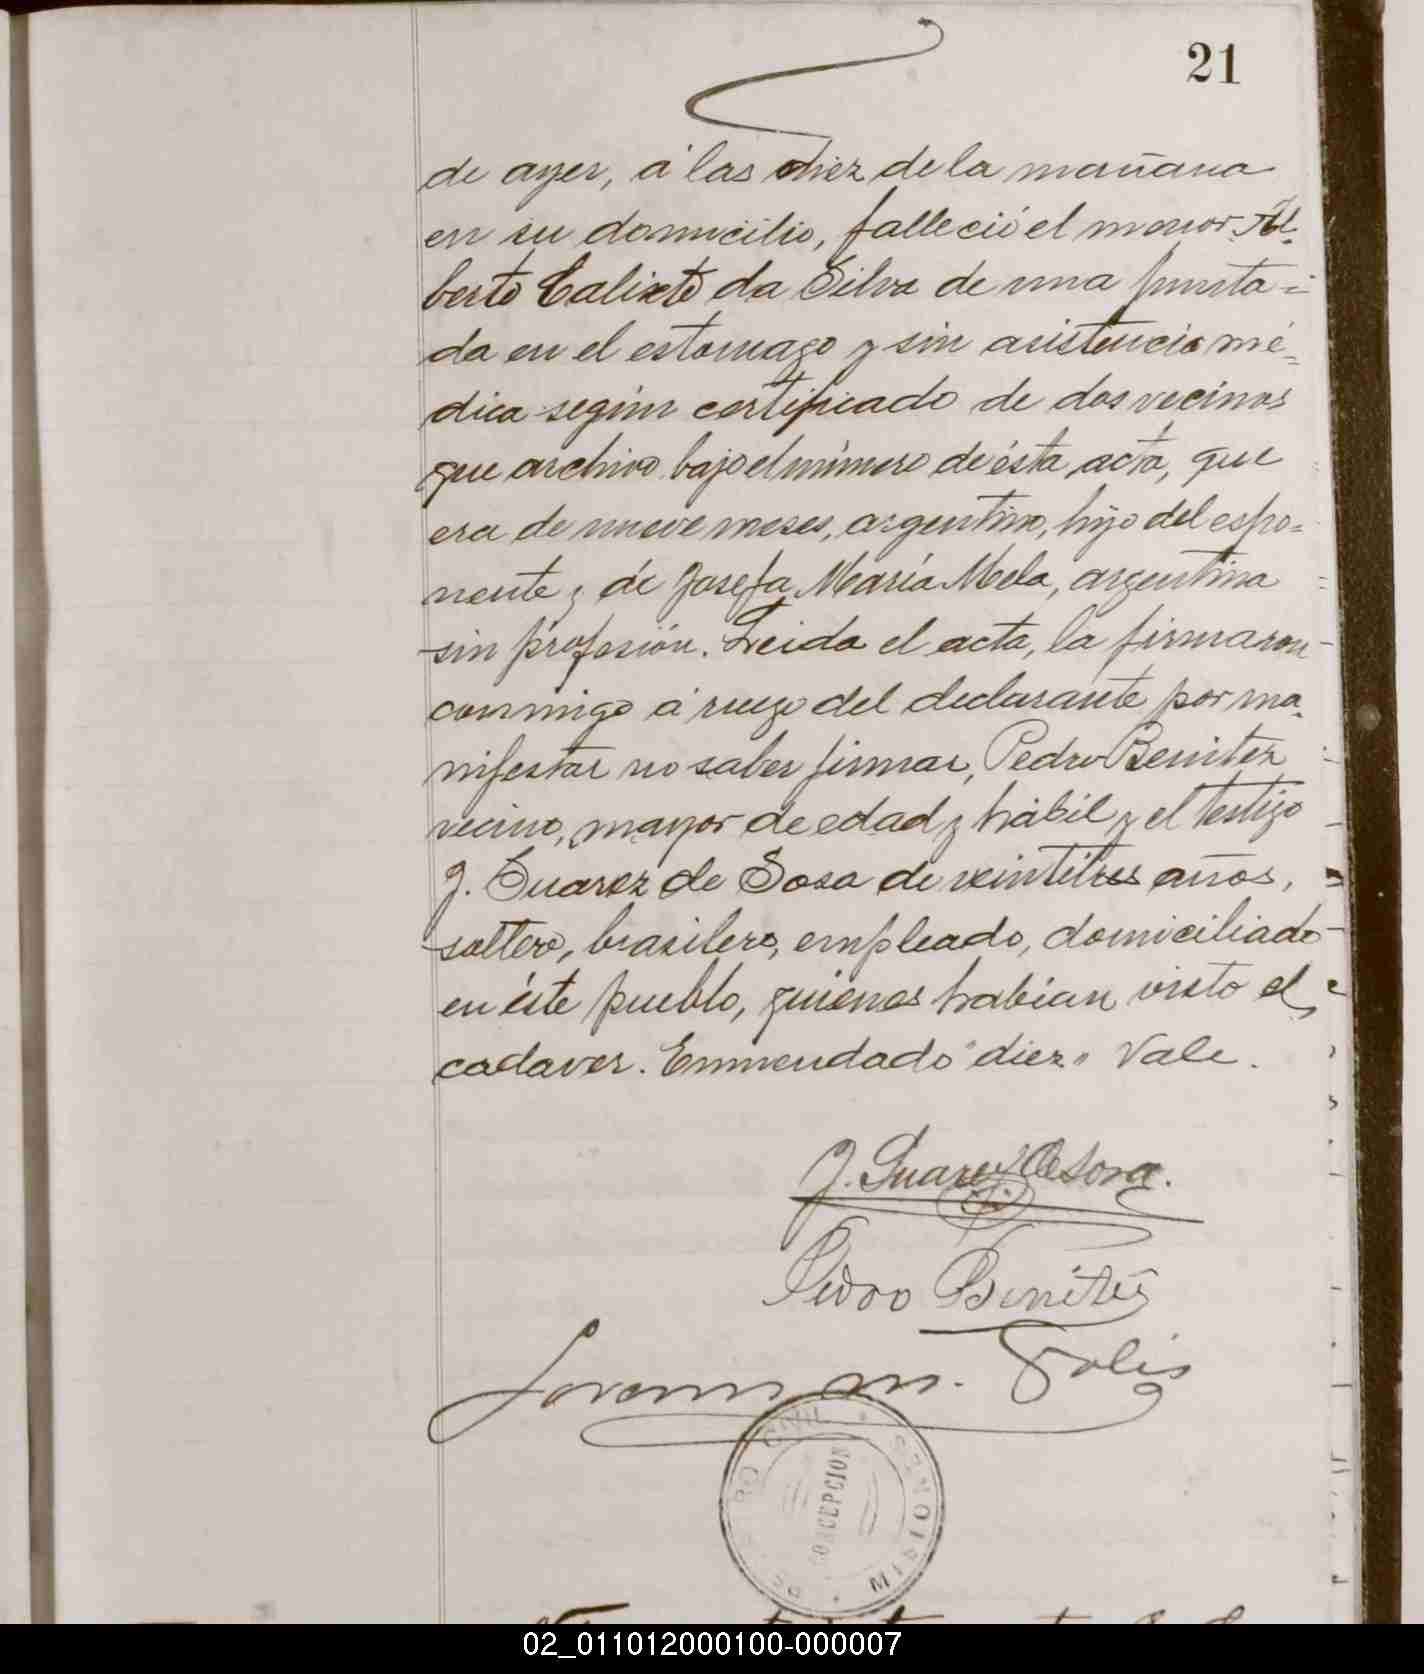 21
de ayer, á las diez de la mañana
en su domicilio, falleció el menor Al-
berto Calixto da Silva de una punta=
da en el estomago y sin asistencia mé-
dica segun certificado de dos vecinos
que archivo bajo el número de ésta acta, que
era de nueve meses, argentino, hijo del espo=
nente y de Josefa María Mela, argentina
sin profesión. Leida el acta, la firmaron
conmigo á ruego del declarante por ma-
nifestar no saber firmar, Pedro Benitez
vecino, mayor de edad y hábil y el testigo
J. Suarez de Sosa de veintitres años,
soltero, brasilero, empleado, domiciliado
en éste pueblo, quienes habian visto el
cadaver. Enmendado "diez" Vale.
J. Suarez de Sosa.
Pedro Benítes
M. Solis
REGISTRO CIVIL
CONCEPCION
MISIONES
02_011012000100-000007